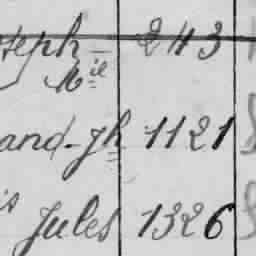 seph 243
Mie
and-Jh 1121
is Jules 1326